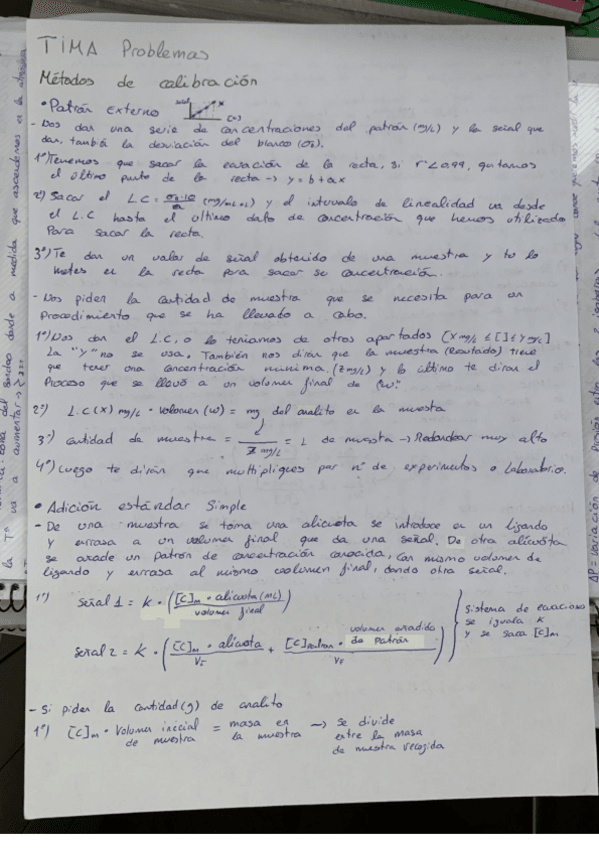 TIMA Problemas
Métodos de calibración
• Patrón Externo
- Dos dan una serie de concentraciones del patrón (mg/L) y la señal que
dan, también la desviación del blanco (σB).
1º) Tenemos que sacar la ecuación de la recta, si r² < 0.99, quitamos
el ultimo punto de la recta → y = b + ax
2) Sacar el L.C = (mg/L) y el intervalo de linealidad va desde
el L.C hasta el ultimo dato de concentración que hemos utilizado
Para sacar la recta.
3º) Te dan un valor de señal obtenido de una muestra y tu lo
metes en la recta para sacar su concentración.
- Dos piden la cantidad de muestra que se necesita para un
procedimiento que se ha llevado a cabo.
1º) Nos dan el L.C, o lo teniamos de otros apartados [X mg/L ≤ [ ] ≤ Y mg/L]
La "Y" no se usa. También nos diran que la muestra (Resultado) tiene
que tener una concentración minima, (Z mg/L) y lo último te diran el
Proceso que se llevó a un volumen final de (W).
2º) L.C (X) mg/L · volumen (W) = mg del analito en la muestra
3º) Cantidad de muestra = / Z mg/L = L de muestra → Redondear muy alto
4º) Luego te dirán que multipliques por nº de experimentos o laboratorio.
• Adición estándar Simple
- De una muestra se toma una alicuota se introduce en un ligando
y enrasa a un volumen final que da una señal. De otra alicuota
se añade un patrón de concentración conocida, con mismo volumen de
ligando y enrasa al mismo volumen final, dando otra señal.
1º) Señal 1 = K · ([C]m · alicuota (mL) / volumen final)
Señal 2 = K · ([C]m · alicuota / VF + [C]patron · volumen añadido de Patrón / VF)
Sistema de ecuaciones
se iguala K
y se saca [C]m
- Si piden la cantidad (g) de analito
1º) [C]m · Volumen inicial de muestra = masa en la muestra → se divide
entre la masa
de muestra recogida
la Tª va a aumentar